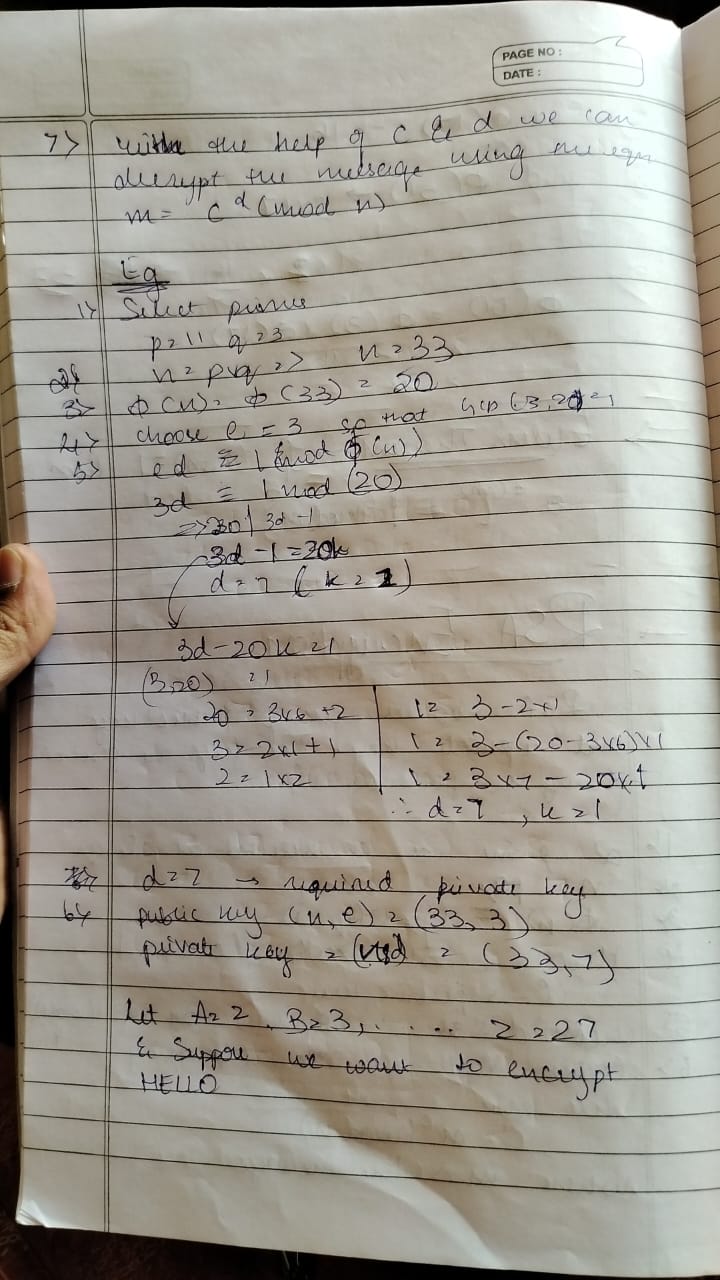 PAGE NO :
DATE :
7) with the help of c & d we can
decrypt the message using the eqn
m = c^d (mod n)
Eg
1) Select primes
p = 11 q = 3
2) n = pxq => n = 33
3) ϕ(n) = ϕ(33) = 20
4) choose e = 3 so that gcp (3, 20) = 1
5) ed ≡ 1 (mod ϕ(n))
3d ≡ 1 mod (20)
=> 20 | 3d - 1
3d - 1 = 20k
d = 7 (k = 1)
3d - 20k = 1
(3,20) = 1
20 = 3x6 + 2
3 = 2x1 + 1
2 = 1x2
1 = 3 - 2x1
1 = 3 - (20 - 3x6)x1
1 = 3x7 - 20x1
∴ d = 7 , k = 1
d = 7 → required private key
6) public key (n, e) = (33, 3)
private key = (n,d) = (33,7)
Let A = 2, B = 3, . . . . . Z = 27
& Suppose we want to encrypt
HELLO